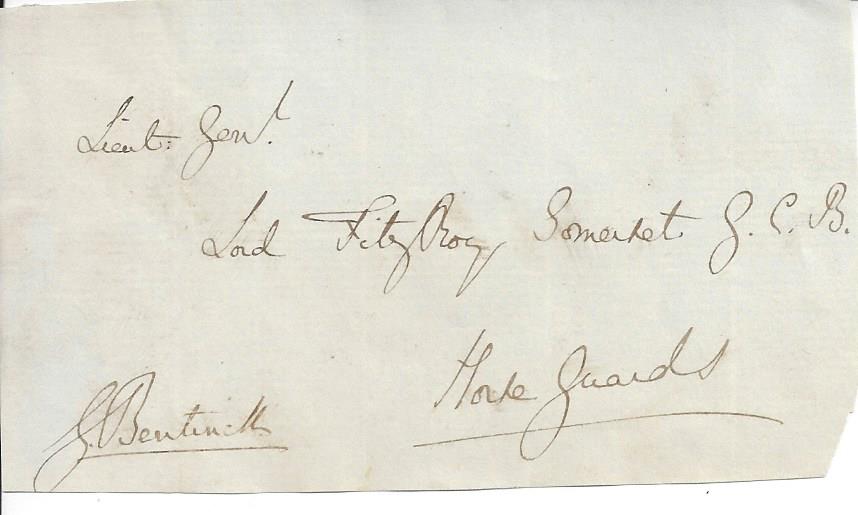 Lieut: Genl.
Lord FitzRoy Somerset G. C. B.
Horse Guards
G. Bentinck